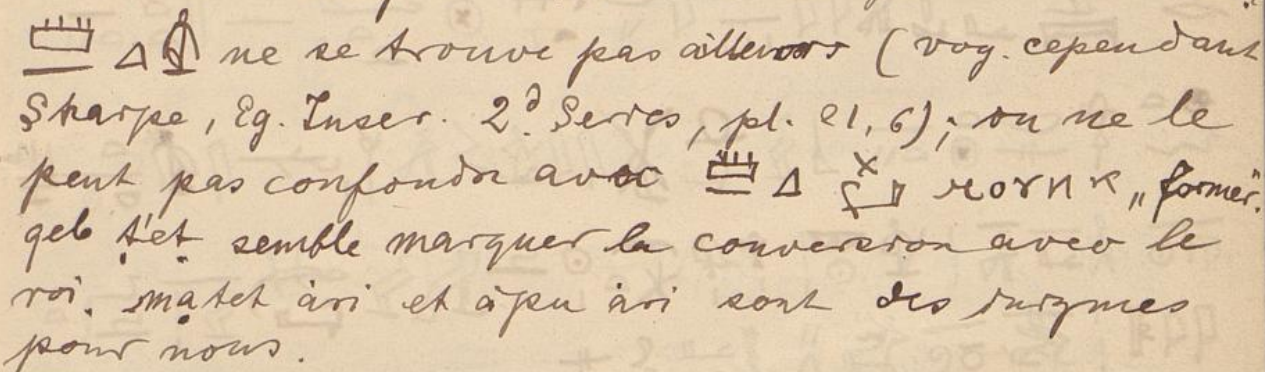 𓏠𓈖𓈎 ne se trouve pas ailleurs (voy. cependant
Sharpe, Eg. Inscr. 2d Series, pl. 21, 6); on ne le
peut pas confondre avec 𓏠𓈖𓈎 ⲙⲟⲩⲛⲕ „former".
qeb t'et semble marquer la conversion avec le
roi. matet àri et àpu àri sont des énigmes
pour nous.